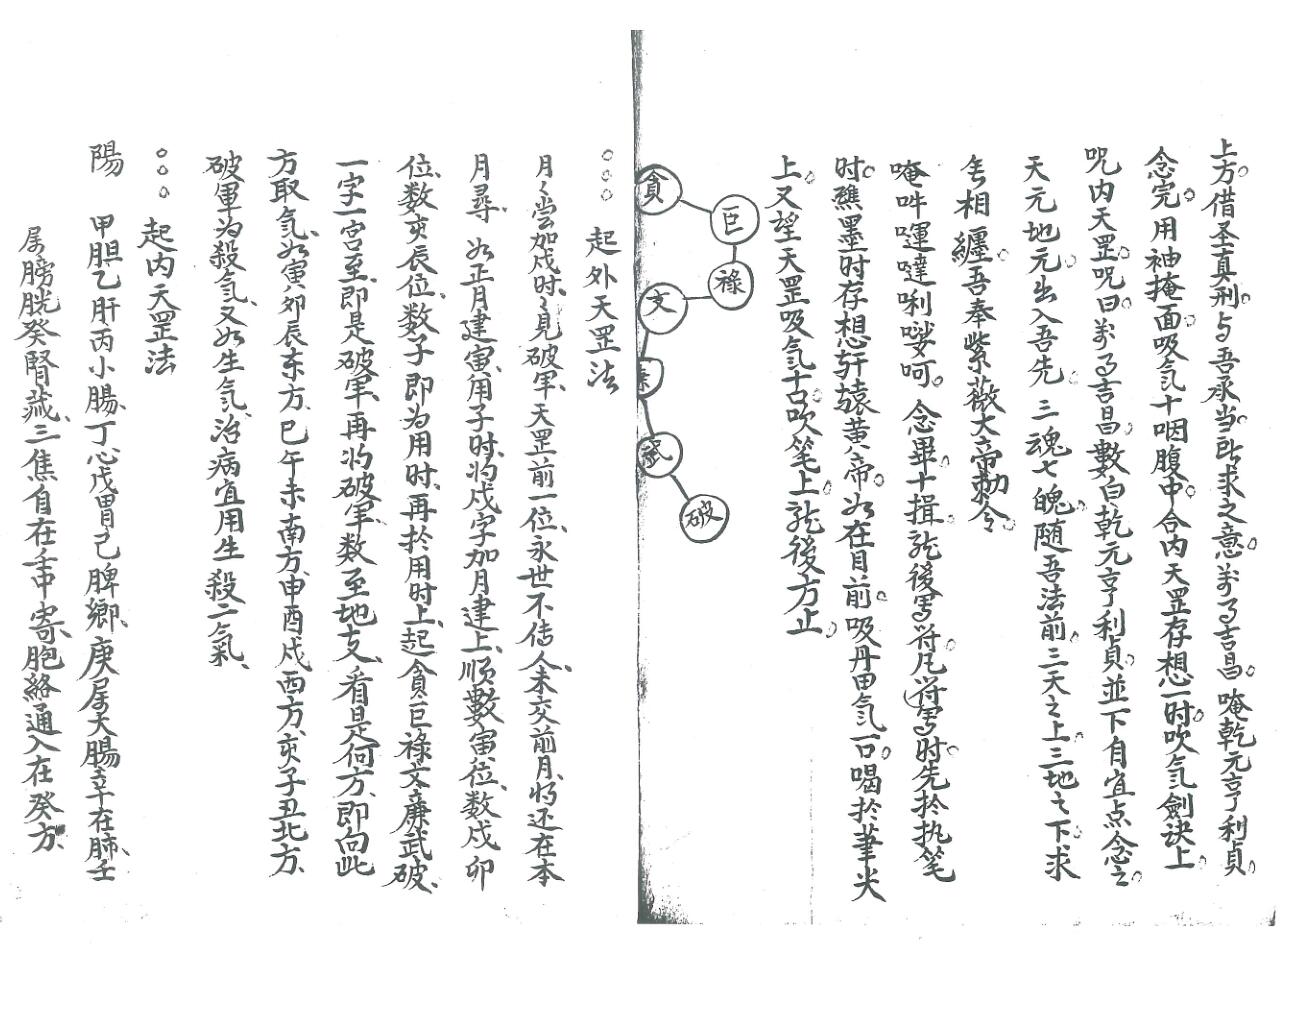 上方借圣真刑与吾承当所求之意万事吉昌唵乾元亨利貞
念完用袖掩面吸气十咽腹中合内天罡存想一时吹气劍诀上
咒内天罡咒曰万事吉昌數白乾元亨利貞並下自宜点念之
天元地元出入吾先三魂七魄随吾法前三天之上三地之下求
相纏吾奉紫薇大帝勅令
唵吽運噠唎娑呵念畢十揖然后寫符凡符寫时先於执笔
时醮墨时存想轩辕黄帝如在目前吸丹田气一口喝於筆尖
上又望天罡吸气十口吹笔上然後方止
貪
巨
祿
文
廉
武
破
起外天罡法
月月尝加戍时时見破军天罡前一位永世不传人未交前月将还在本
月尋如正月建寅用子时将戍字加月建上順數寅位数戍卯
位数亥辰位数子即为用时再於用时上起貪巨祿文廉武破
一字一宮至即是破軍再将破军数至地支看是何方即向此
方取气如寅卯辰东方巳午未南方申酉戍西方亥子丑北方
破軍为殺气又如生气治病宜用生殺二氣
起内天罡法
陽 甲胆乙肝丙小腸丁心戊胃己脾鄉庚属大腸辛在肺壬
属膀胱癸腎藏三焦自在壬中寄胞絡通入在癸方